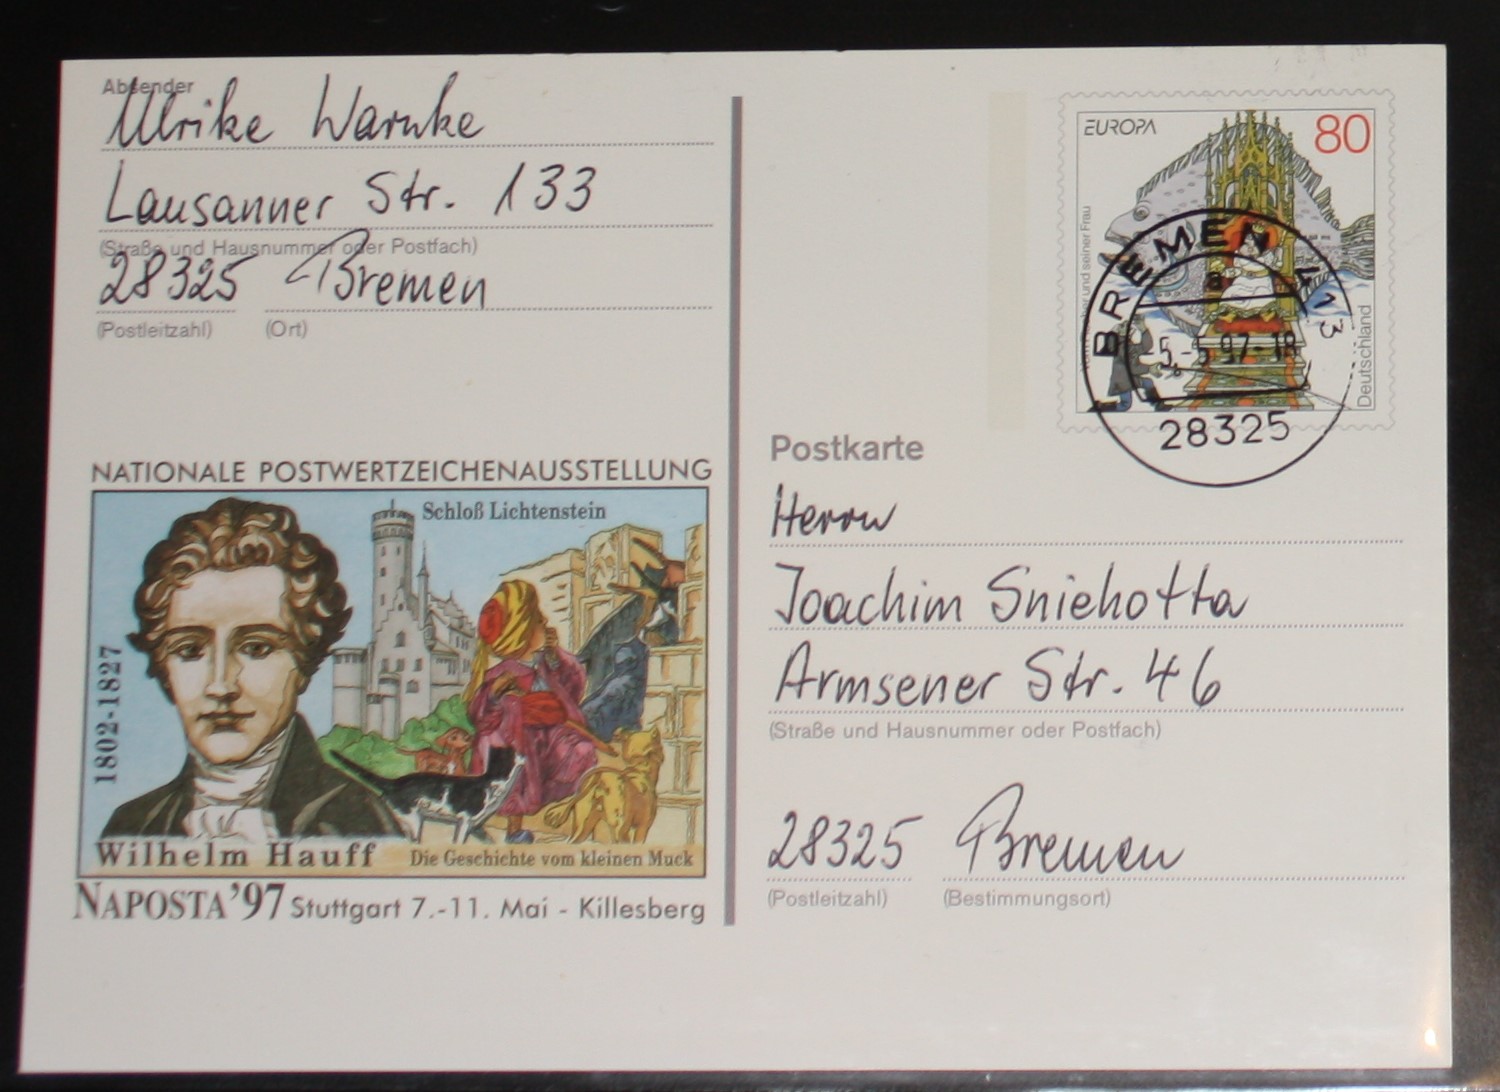 Absender
Ulrike Warnke
Lausanner Str. 133
(Straße und Hausnummer oder Postfach)
28325 Bremen
(Postleitzahl) (Ort)
NATIONALE POSTWERTZEICHENAUSSTELLUNG
Schloß Lichtenstein
1802-1827
Wilhelm Hauff
Die Geschichte vom kleinen Muck
NAPOSTA'97 Stuttgart 7.-11. Mai - Killesberg
EUROPA
80
und seiner Frau
Deutschland
BREMEN 413
a
-5.-5.97-18
28325
Postkarte
Herrn
Joachim Sniehotta
Armsener Str. 46
(Straße und Hausnummer oder Postfach)
28325 Bremen
(Postleitzahl) (Bestimmungsort)